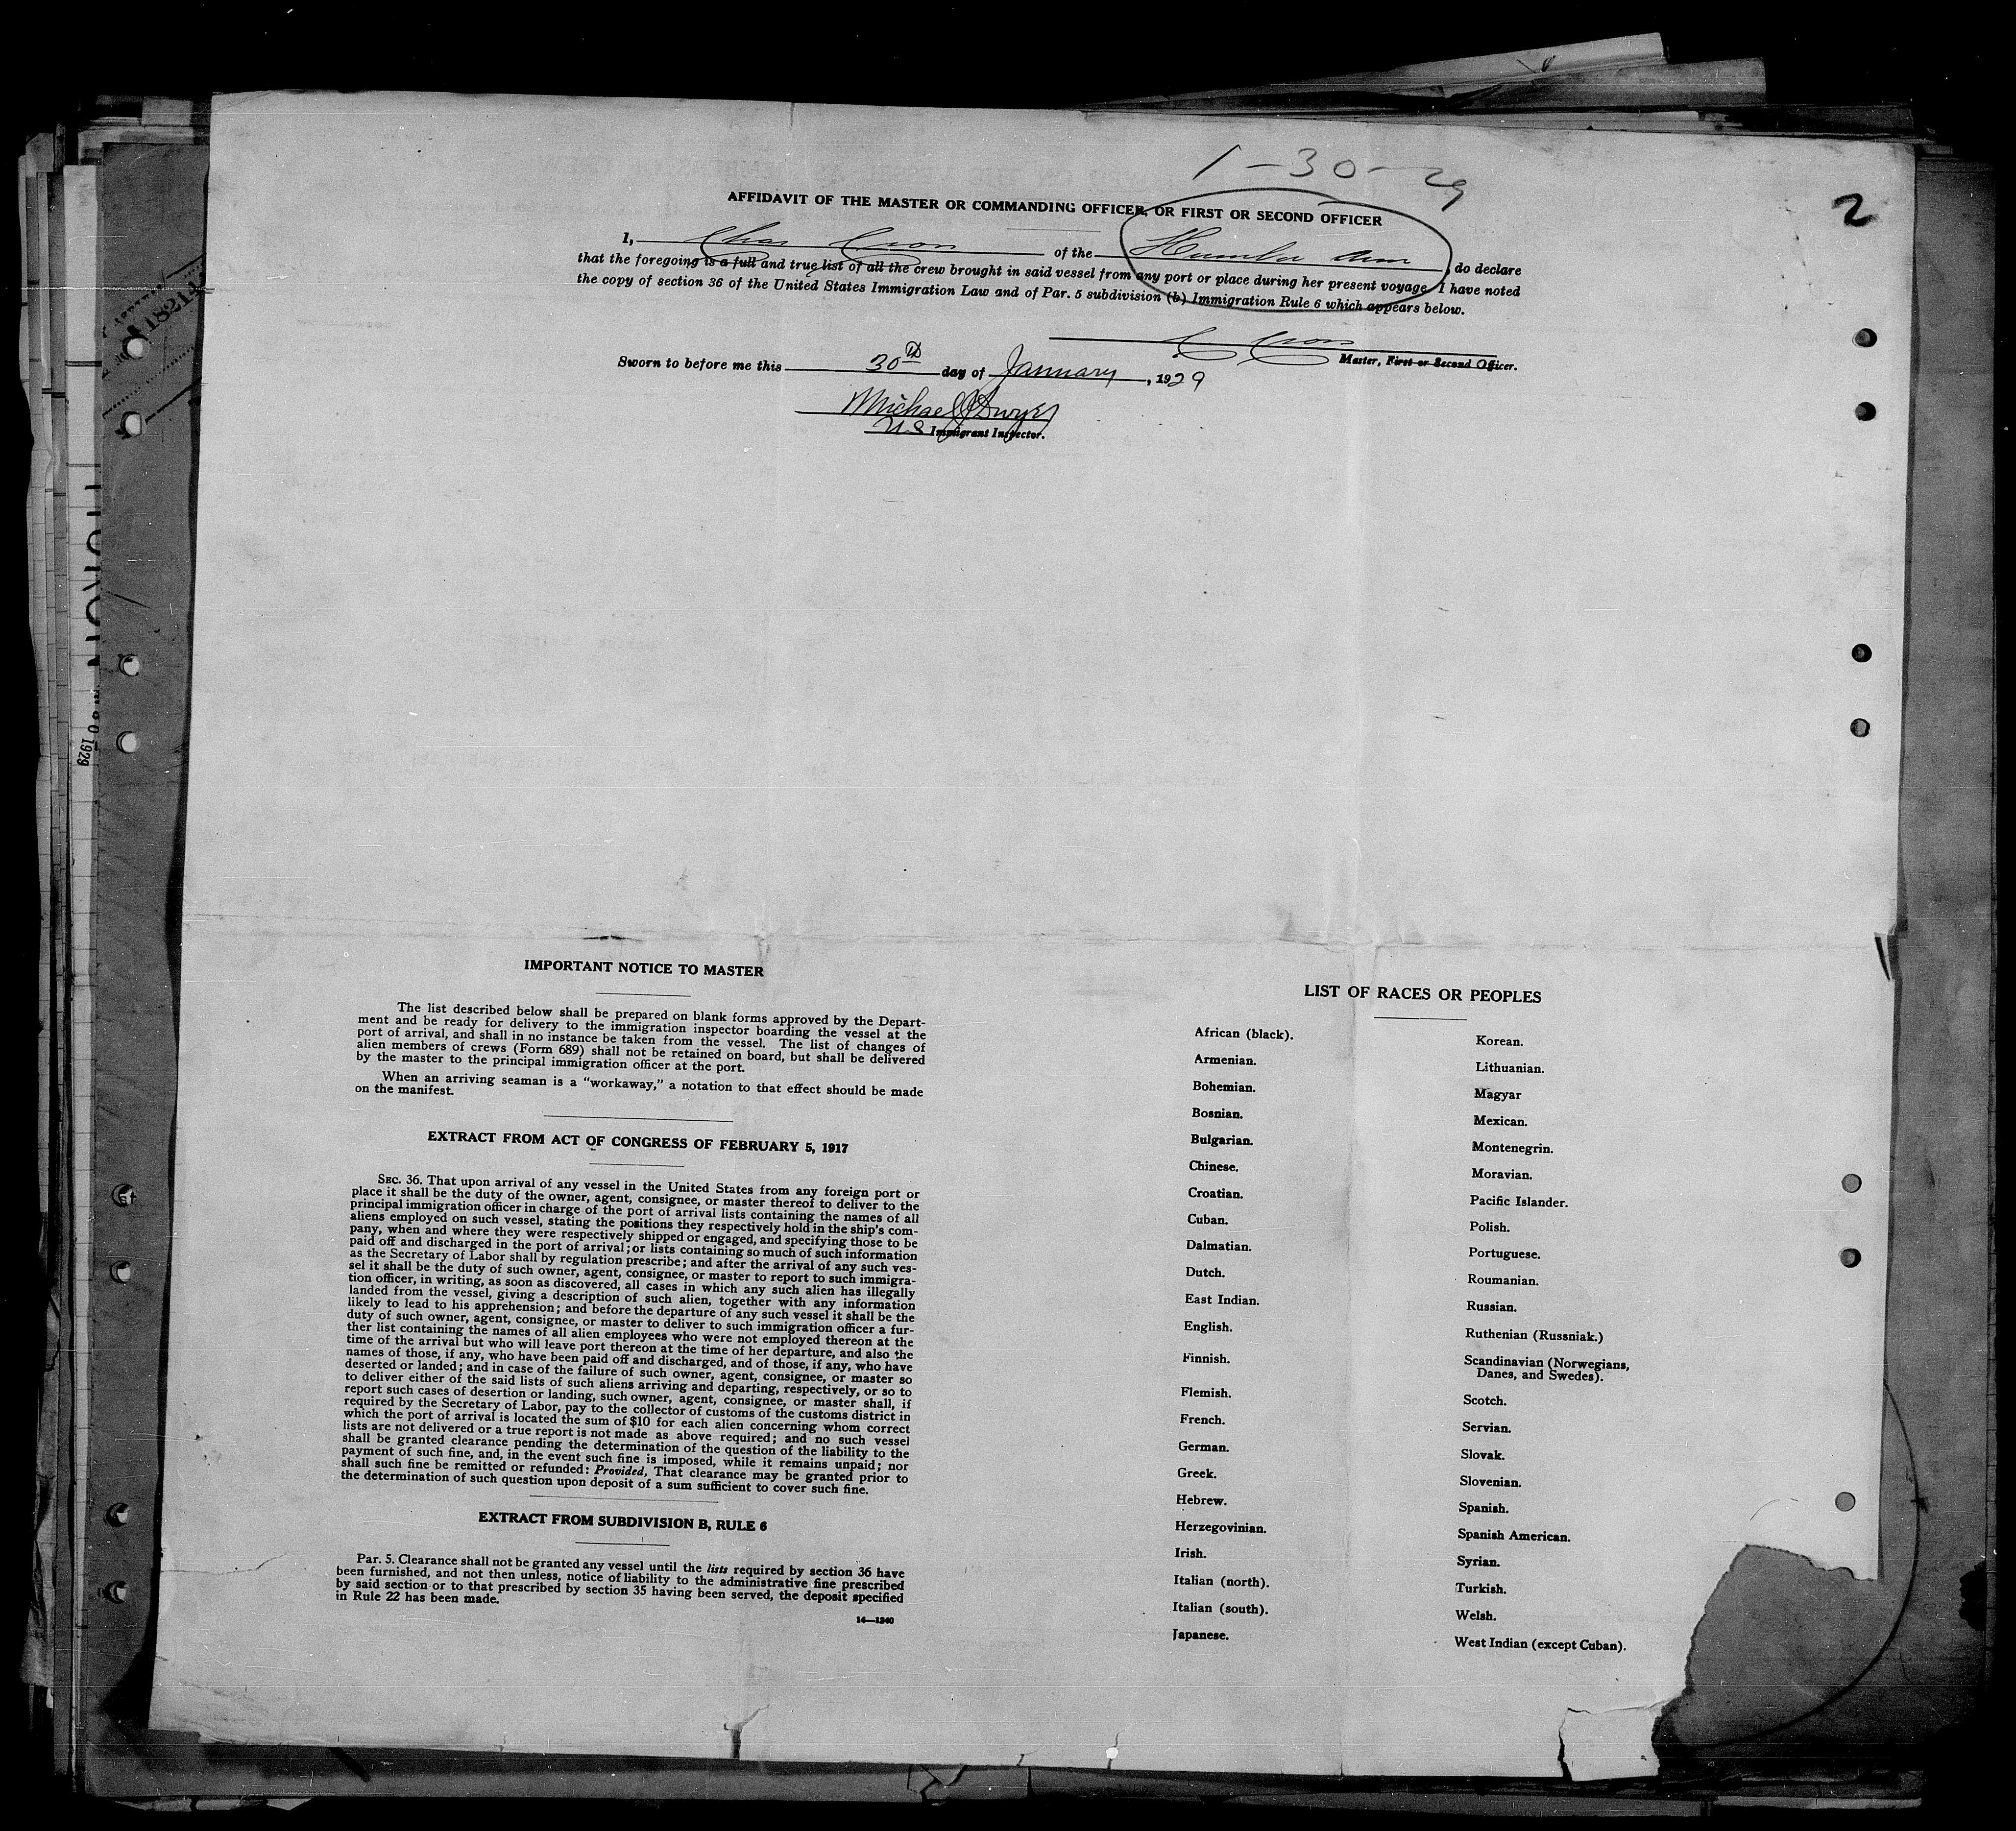 1-30-29
2
AFFIDAVIT OF THE MASTER OR COMMANDING OFFICER, OR FIRST OR SECOND OFFICER
I, Chas Cross of the Humber Arm, do declare
that the foregoing is a full and true list of all the crew brought in said vessel from any port or place during her present voyage. I have noted
the copy of section 36 of the United States Immigration Law and of Par. 5 subdivision (b) Immigration Rule 6 which appears below.
C Cross
Master, First or Second Officer.
Sworn to before me this 30th day of January, 1929
Michael J Dwyer
U.S. Immigrant Inspector.
18214
1929
IMPORTANT NOTICE TO MASTER
The list described below shall be prepared on blank forms approved by the Depart-
ment and be ready for delivery to the immigration inspector boarding the vessel at the
port of arrival, and shall in no instance be taken from the vessel. The list of changes of
alien members of crews (Form 689) shall not be retained on board, but shall be delivered
by the master to the principal immigration officer at the port.
When an arriving seaman is a "workaway," a notation to that effect should be made
on the manifest.
EXTRACT FROM ACT OF CONGRESS OF FEBRUARY 5, 1917
SEC. 36. That upon arrival of any vessel in the United States from any foreign port or
place it shall be the duty of the owner, agent, consignee, or master thereof to deliver to the
principal immigration officer in charge of the port of arrival lists containing the names of all
aliens employed on such vessel, stating the positions they respectively hold in the ship's com-
pany, when and where they were respectively shipped or engaged, and specifying those to be
paid off and discharged in the port of arrival; or lists containing so much of such information
as the Secretary of Labor shall by regulation prescribe; and after the arrival of any such ves-
sel it shall be the duty of such owner, agent, consignee, or master to report to such immigra-
tion officer, in writing, as soon as discovered, all cases in which any such alien has illegally
landed from the vessel, giving a description of such alien, together with any information
likely to lead to his apprehension; and before the departure of any such vessel it shall be the
duty of such owner, agent, consignee, or master to deliver to such immigration officer a fur-
ther list containing the names of all alien employees who were not employed thereon at the
time of the arrival but who will leave port thereon at the time of her departure, and also the
names of those, if any, who have been paid off and discharged, and of those, if any, who have
deserted or landed; and in case of the failure of such owner, agent, consignee, or master so
to deliver either of the said lists of such aliens arriving and departing, respectively, or so to
report such cases of desertion or landing, such owner, agent, consignee, or master shall, if
required by the Secretary of Labor, pay to the collector of customs of the customs district in
which the port of arrival is located the sum of $10 for each alien concerning whom correct
lists are not delivered or a true report is not made as above required; and no such vessel
shall be granted clearance pending the determination of the question of the liability to the
payment of such fine, and, in the event such fine is imposed, while it remains unpaid; nor
shall such fine be remitted or refunded: Provided, That clearance may be granted prior to
the determination of such question upon deposit of a sum sufficient to cover such fine.
EXTRACT FROM SUBDIVISION B, RULE 6
Par. 5. Clearance shall not be granted any vessel until the lists required by section 36 have
been furnished, and not then unless, notice of liability to the administrative fine prescribed
by said section or to that prescribed by section 35 having been served, the deposit specified
in Rule 22 has been made.
14—1240
LIST OF RACES OR PEOPLES
African (black).
Armenian.
Bohemian.
Bosnian.
Bulgarian.
Chinese.
Croatian.
Cuban.
Dalmatian.
Dutch.
East Indian.
English.
Finnish.
Flemish.
French.
German.
Greek.
Hebrew.
Herzegovinian.
Irish.
Italian (north).
Italian (south).
Japanese.
Korean.
Lithuanian.
Magyar
Mexican.
Montenegrin.
Moravian.
Pacific Islander.
Polish.
Portuguese.
Roumanian.
Russian.
Ruthenian (Russniak.)
Scandinavian (Norwegians,
Danes, and Swedes).
Scotch.
Servian.
Slovak.
Slovenian.
Spanish.
Spanish American.
Syrian.
Turkish.
Welsh.
West Indian (except Cuban).